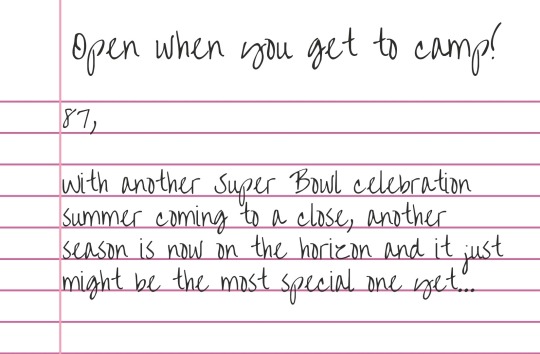 Open when you get to camp!
87,
with another Super Bowl celebration
summer coming to a close, another
season is now on the horizon and it just
might be the most special one yet...